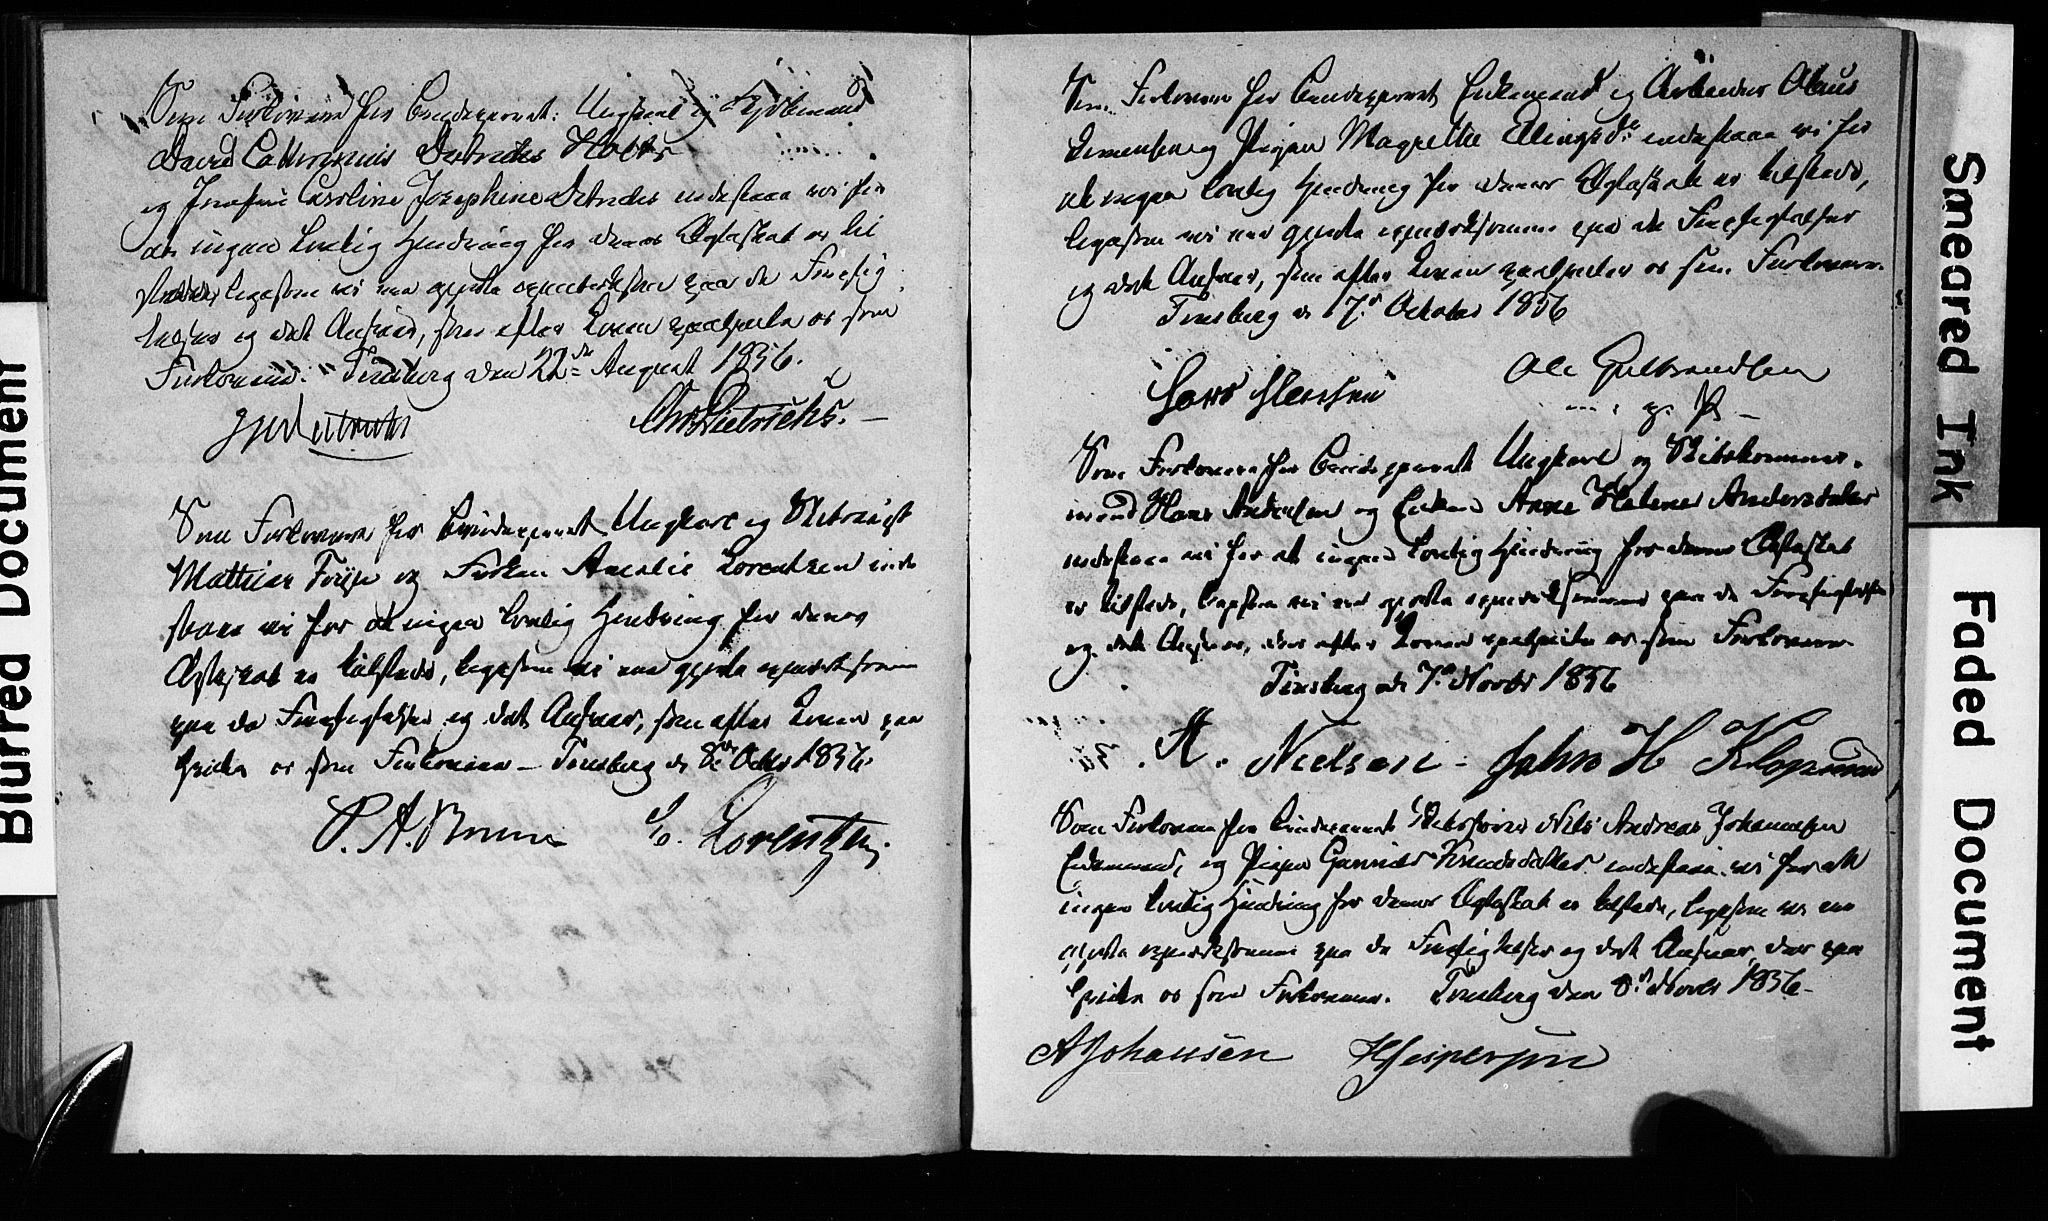 Som Forlovere for Brudeparret: Ungkarl og Kjøbmand
David Dietrichs Holst
og Caroline Josephine Dietrichs indestaae vi for
at ingen Lovlig Hindring for deres Ægteskab er til
stede, ligesom vi ere gjorte opmærksomme paa de Forsig
og det Ansvar, som efter Loven paahviler os som
Forlovere. Tønsberg den 22de August 1856.
Chr Dietrichs.
Som Forlovere for Brudeparret Ungkarl og
Mathias Foyn og Frøken Amalie Lorentzen inde
staae vi for at ingen Lovlig Hindring for deres
Ægteskab er tilstede, ligesom vi ere gjorte opmærksomme
paa de Forpligtelser og det Ansvar, som efter Loven paa
hviler os som Forlovere – Tønsberg d. 8de Octbr 1856.
P. A. Bruun
C. Lorentzen.
Som Forlovere for Brudeparret Enkemand og Arbeider Olaus
og Pigen Magrethe Ellingsdr indestaae vi for
at ingen lovlig Hindring for deres Ægteskab er tilstede,
ligesom vi ere gjorte opmærksomme paa de Forpligtelser
og det Ansvar, som efter Loven paahviler os som Forlovere.
Tønsberg d 17de October 1856
Hans Hansen
Ole Gulbrandsen
Som Forlovere for Brudeparret Ungkarl og Skibstømmer-
mand Hans Andersen og Enken Anne Helene Andersdatter
indestaae vi for at ingen Lovlig Hindring for deres Ægteskab
er tilstede, ligesom vi ere gjorte opmærksomme paa de Forpligtelser
og det Ansvar, der efter Loven paahviler os som Forlovere
Tønsberg d. 7de Novbr 1856
A. Nielsen – John H Klopmand
Som Forlovere for Brudeparret Nils Andreas Johannesen
Enkemand, og Pigen Gunnild Knudsdatter indestaae vi for at
ingen Lovlig Hindring for deres Ægteskab er tilstede, ligesom vi ere
gjorte opmærksomme paa de Forpligtelser og det Ansvar, der paa
hviler os som Forlovere. Tønsberg den 8de Novbr 1856 –
A Johansen
H Jespersen
Blurred Document
Smeared Ink
Faded Document